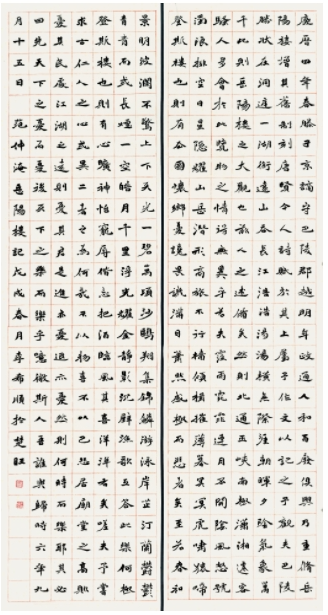 慶曆四年春滕子京謫守巴陵郡越明年政通人和百廢俱興乃重修岳
陽樓增其舊制刻唐賢今人詩賦於其上屬予作文以記之予觀夫巴陵
勝狀在洞庭一湖銜遠山吞長江浩浩湯湯橫無際涯朝暉夕陰氣象萬
千此則岳陽樓之大觀也前人之述備矣然則北通巫峽南極瀟湘遷客
騷人多會於此覽物之情得無異乎若夫霪雨霏霏連月不開陰風怒號
濁浪排空日星隱耀山岳潛形商旅不行檣傾楫摧薄暮冥冥虎嘯猿啼
登斯樓也則有去國懷鄉憂讒畏譏滿目蕭然感極而悲者矣至若春和
景明波瀾不驚上下天光一碧萬頃沙鷗翔集錦鱗游泳岸芷汀蘭鬱鬱
青青而或長煙一空皓月千里浮光耀金靜影沉璧漁歌互答此樂何極
登斯樓也則有心曠神怡寵辱偕忘把酒臨風其喜洋洋者矣嗟夫予嘗
求古仁人之心或異二者之為何哉不以物喜不以己悲居廟堂之高則
憂其民處江湖之遠則憂其君是進亦憂退亦憂然則何時而樂耶其必
曰先天下之憂而憂後天下之樂而樂乎噫微斯人吾誰與歸時六年九
月十五日范仲淹岳陽樓記戊戌春月李希順於楚旺